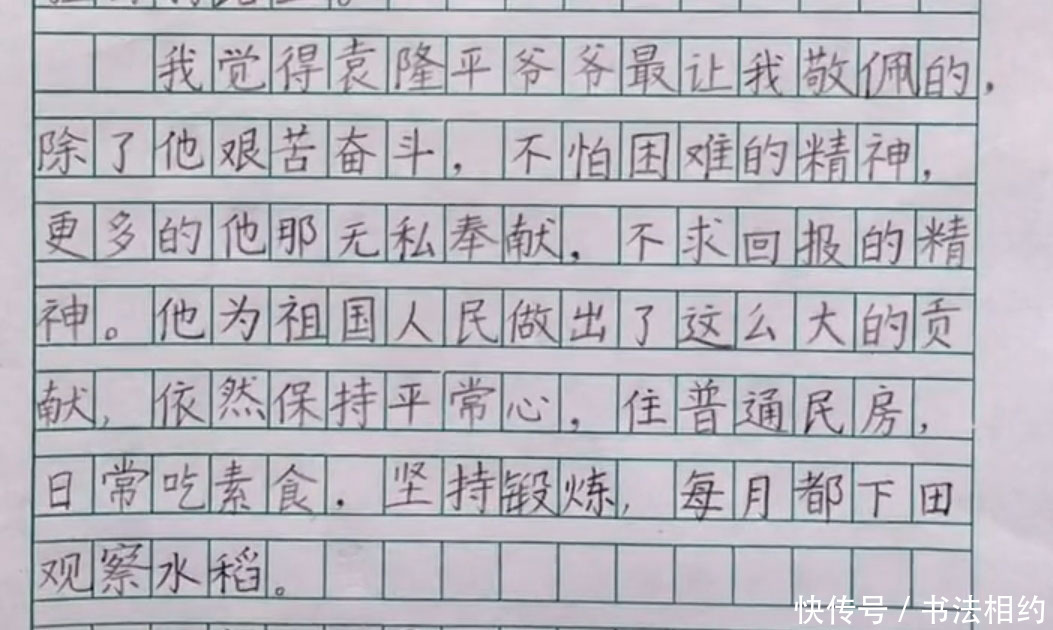 我觉得袁隆平爷爷最让我敬佩的,
除了他艰苦奋斗,不怕困难的精神,
更多的他那无私奉献,不求回报的精
神。他为祖国人民做出了这么大的贡
献,依然保持平常心,住普通民房,
日常吃素食.坚持锻炼,每月都下田
观察水稻。
快传号 / 书法相约